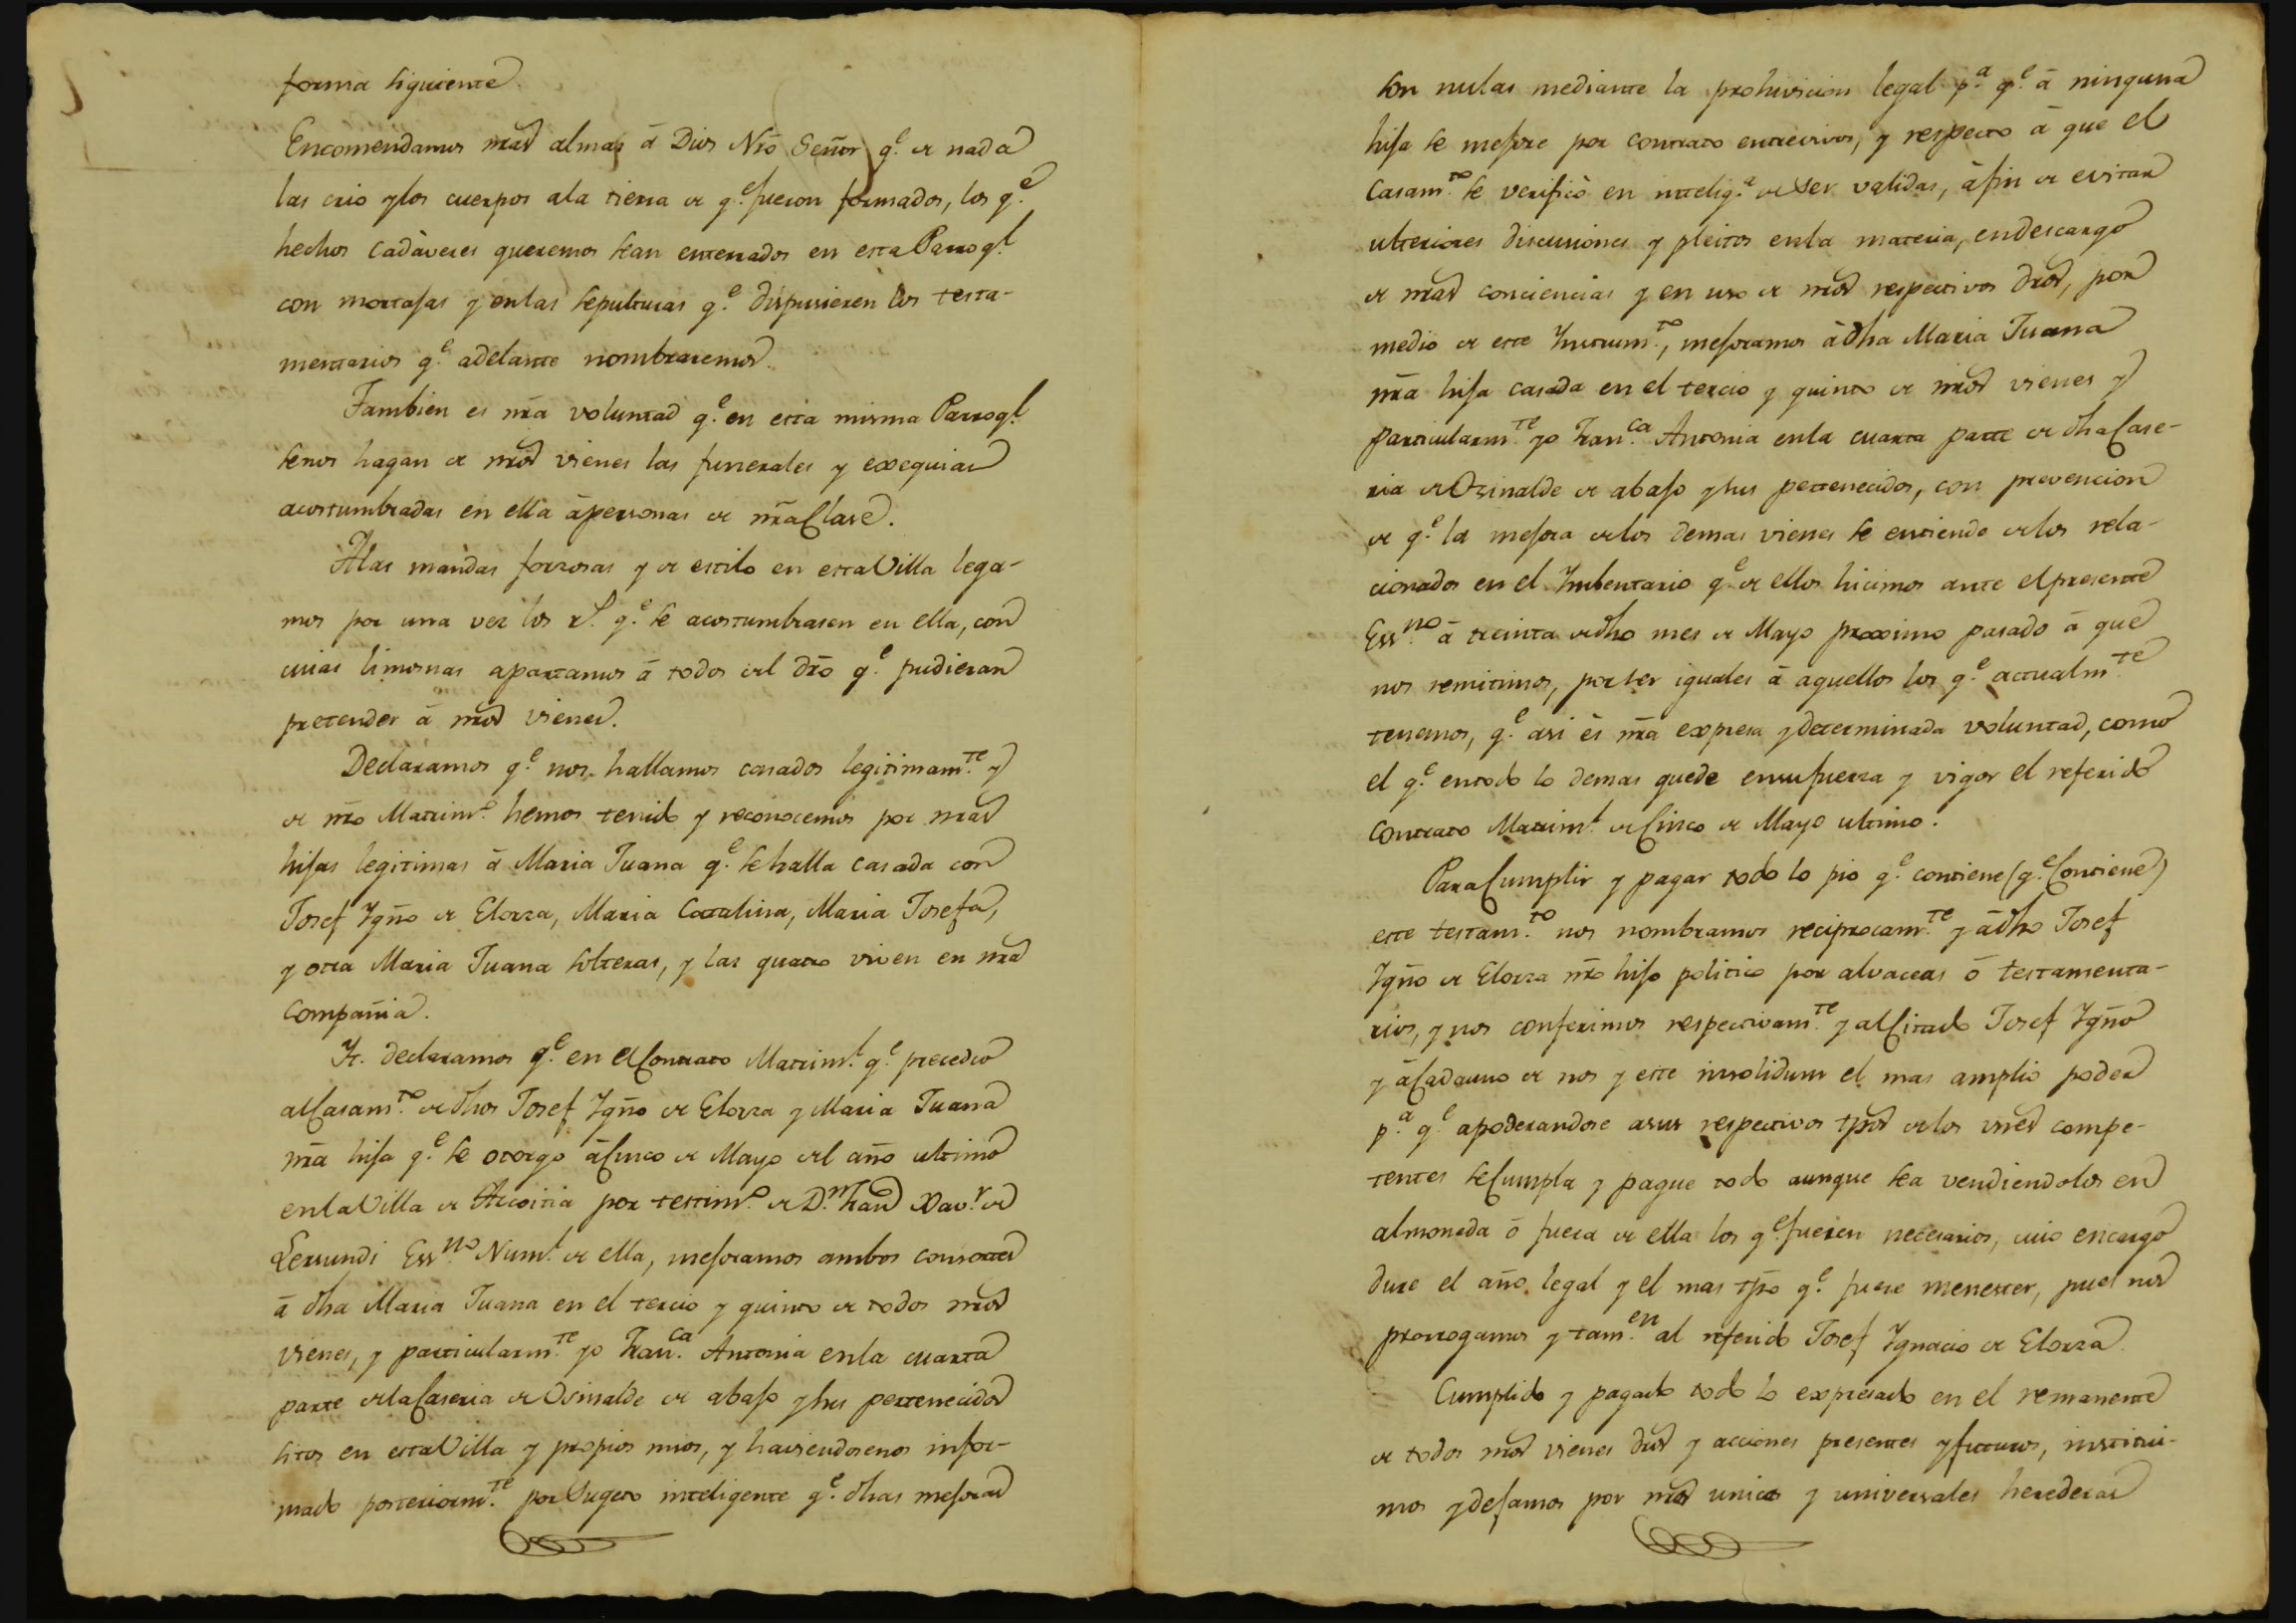 forma siguiente.
Encomendamos nrãs almas á Dios Nrõ Señor q.e de nada
las crio y los cuerpos ala tierra de q.e fueron formados, los q.e
hechos cadàveres queremos sean enterrados en esta Parroq.l
con mortajas y en las sepulturas q.e dispusieren los testa-
mentarios q.e adelante nombraremos.
Tambien es nrã voluntad q.e en esta misma Parroq.l
senos hagan de nrõs vienes las funerales y exequias
acostumbradas en ella ápersonas de nrã Clase.
Alas mandas forzosas y de estilo en esta Villa lega-
mos por una vez los rS. q.e se acostumbrasen en ella, con
cuias limosnas apartamos á todos del drõ q.e pudieran
pretender á nrõs vienes.
Declaramos q.e nos hallamos casados legitimam.te y
de nrõ Matrim.o hemos tenido y reconocemos por nrãs
hijas legitimas á Maria Juana q.e se halla casada con
Josef Ygñо de Elorza, Maria Catalina, Maria Josefa,
y otra Maria Juana solteras, y las quatro viven en nrã
Compañia.
Yt. declaramos q.e en el Contrato Matrim.l q.e precedio
al Casam.to de dhos Josef Ygño de Elorza y Maria Juana
nrã hija q.e se otorgo á Cinco de Mayo del año ultimo
en la Villa de Azcoitia por testim.o de D.n Fran Xav.r de
Lersundi Ess.no Num.l de ella, mejoramos ambos consortes
á dha Maria Juana en el tercio y quinto de todos nrõs
vienes, y particularm.te yo Fran.ca Antonia en la cuarta
parte de la Caseria de Osinalde de abajo y sus pertenecidos
sitos en esta Villa y propios mios, y haviendosenos infor-
mado posteriorm.te por Sugeto inteligente q.e dhas mejoras
son nulas mediante la prohivicion legal p.a q.e á ninguna
hija se mejore por contrato entrevivos, y respecto á que el
Casam.to se verificò en intelig.a de ser validas, áfin de evitar
ulteriores discusiones y pleitos en la materia, en descargo
de nrãs conciencias y en uso de nrõs respectivos drõs, por
medio de este Ynstrum.to, mejoramos á dha Maria Juana
nrã hija casada en el tercio y quinto de nrõs vienes y
particularm.te yo Fran.ca Antonia en la cuarta parte de dha Case-
ria de Ozinalde de abajo y sus pertenecidos, con prevencion
de q.e la mejora de los demas vienes se entiende de los rela-
cionados en el Ymbentario q.e de ellos hicimos ante el presente
Ess.no á treinta de dho mes de Mayo proximo pasado á que
nos remitimos, por ser iguales á aquellos los q.e actualm.te
tenemos, q.e asi és nrã expresa y determinada voluntad, como
el q.e en todo lo demas quede en su fuerza y vigor el referido
Contrato Matrim.l de Cinco de Mayo ultimo.
Para Cumplir y pagar todo lo pio q.e contiene (q.e Contiene)
este testam.to nos nombramos reciprocam.te y á dho Josef
Ygño de Elorza nrõ hijo politico por alvaceas ó testamenta-
rios, y nos conferimos respectivam.te y al Citado Josef Ygño
y á Cada uno de nos y este insolidum el mas amplio poder
p.a q.e apoderandose asus respectivos tpõs de los vnẽs compe-
tentes se Cumpla y pague todo aunque sea vendiendolos en
almoneda ó fuera de ella los q.e fueren necesarios, cuio encargo
dure el año legal y el mas tpõ q.e fuese menester, pues nos
prorrogamos y tam.en al referido Josef Ygnacio de Elorza.
Cumplido y pagado todo lo expresado en el remanente
de todos nrõs vienes drõs y acciones presentes y futuros, institui-
mos y dejamos por nrõs unicas y universales herederas